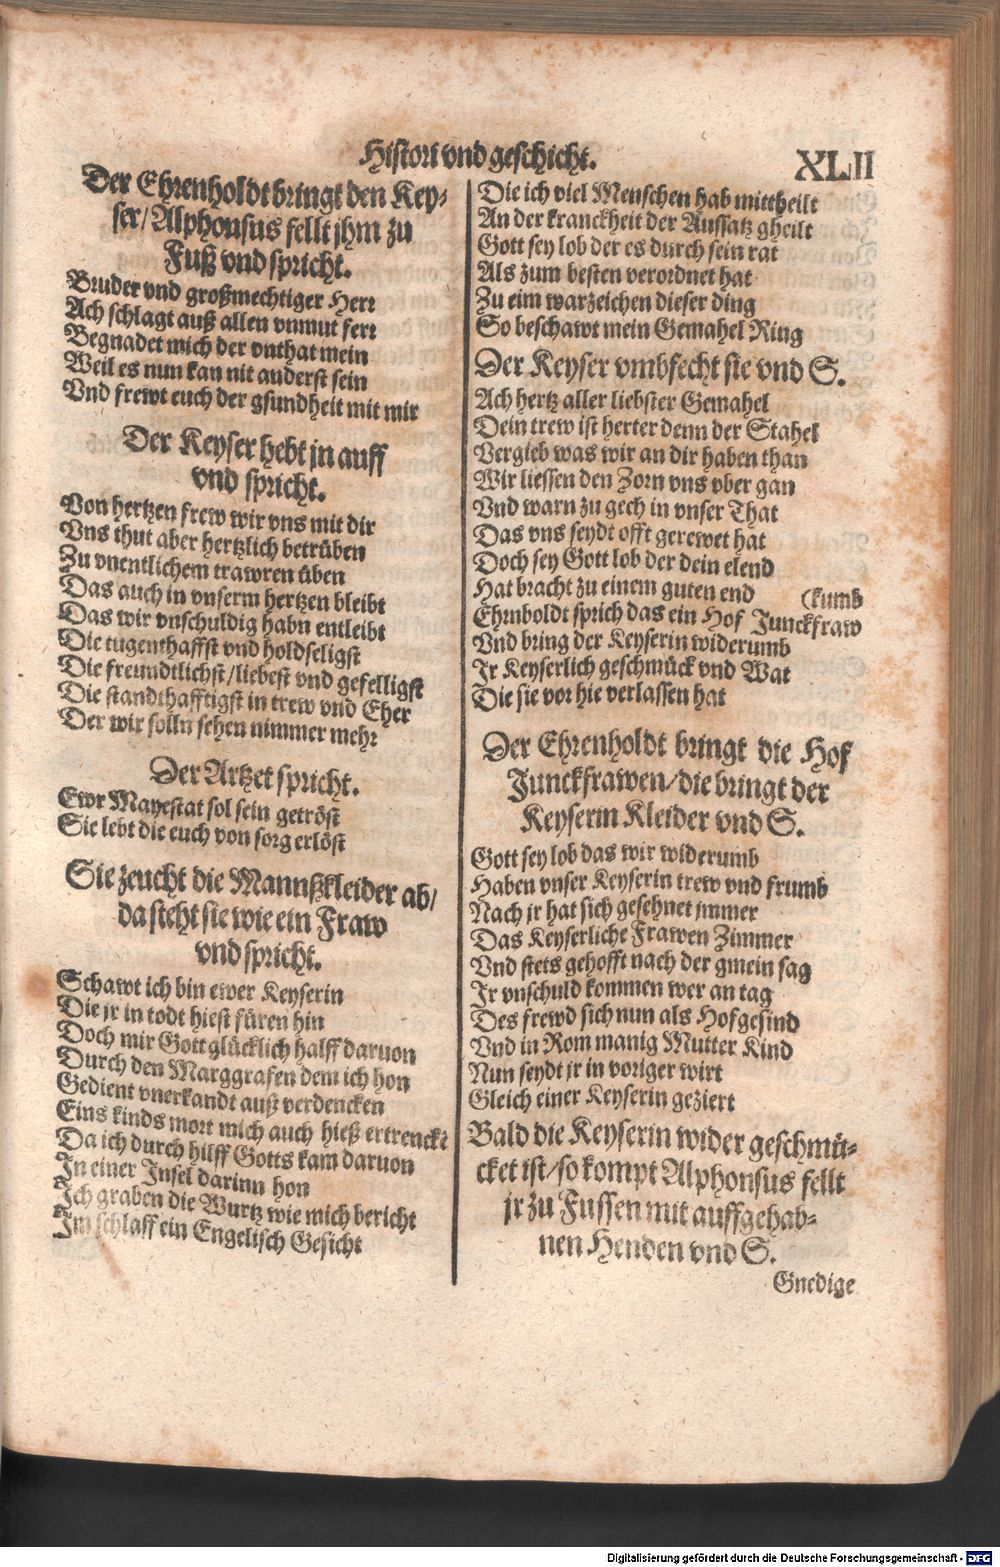 Histori vnd geschicht. XLII
Der Ehrenholdt bringt den Key-
ser/Alphonsus fellt jhm zu
Fuß vnd spricht.
Bruder vnd großmechtiger Herr
Ach schlagt auß allen vnmut ferr
Begnadet mich der vnthat mein
Weil es nun kan nit anderst sein
Vnd frewt euch der gsundheit mit mir
Der Keyser hebt jn auff
vnd spricht.
Von hertzen frew wir vns mit dir
Vns thut aber hertzlich betrüben
Zu vnentlichem trawren üben
Das auch in vnserm hertzen bleibt
Das wir vnschuldig habn entleibt
Die tugenthaffst vnd holdseligst
Die freundtlichst/liebest vnd gefelligst
Die standthafftigst in trew vnd Eher
Der wir solln sehen nimmer mehr
Der Artzet spricht.
Ewr Mayestat sol sein getröst
Sie lebt die euch von sorg erlöst
Sie zeucht die Mannßkleider ab/
da steht sie wie ein Fraw
vnd spricht.
Schawt ich bin ewer Keyserin
Die jr in todt hiest füren hin
Doch mir Gott glücklich halff daruon
Durch den Marggrafen dem ich hon
Gedient vnerkandt auß verdencken
Eins kinds mort mich auch hieß ertrenckē
Da ich durch hilff Gotts kam daruon
In einer Insel darinn hon
Ich graben die Wurtz wie mich bericht
Im schlaff ein Engelisch Gesicht
Die ich viel Menschen hab mittheilt
An der kranckheit der Aussatz gheilt
Gott sey lob der es durch sein rat
Als zum besten verordnet hat
Zu eim warzeichen dieser ding
So beschawt mein Gemahel Ring
Der Keyser vmbfecht sie vnd S.
Ach hertz aller liebster Gemahel
Dein trew ist herter denn der Stahel
Vergieb was wir an dir haben than
Wir liessen den Zorn vns vber gan
Vnd warn zu gech in vnser That
Das vns seydt offt gerewet hat
Doch sey Gott lob der dein elend
Hat bracht zu einem guten end (kumb
Ehrnholdt sprich das ein Hof Junckfraw
Vnd bring der Keyserin widerumb
Ir Keyserlich geschmück vnd Wat
Die sie vor hie verlassen hat
Der Ehrenholdt bringt die Hof
Junckfrawen/die bringt der
Keyserin Kleider vnd S.
Gott sey lob das wir widerumb
Haben vnser Keyserin trew vnd frumb
Nach jr hat sich gesehnet jmmer
Das Keyserliche Frawen Zimmer
Vnd stets gehofft nach der gmein sag
Ir vnschuld kommen wer an tag
Des frewd sich nun als Hofgesind
Vnd in Rom manig Mutter Kind
Nun seydt jr in voriger wirt
Gleich einer Keyserin geziert
Bald die Keyserin wider geschmü-
cket ist/so kompt Alphonsus fellt
jr zu Fussen mit auffgehab-
nen Henden vnd S.
Gnedige
Digitalisierung gefördert durch die Deutsche Forschungsgemeinschaft - DFG